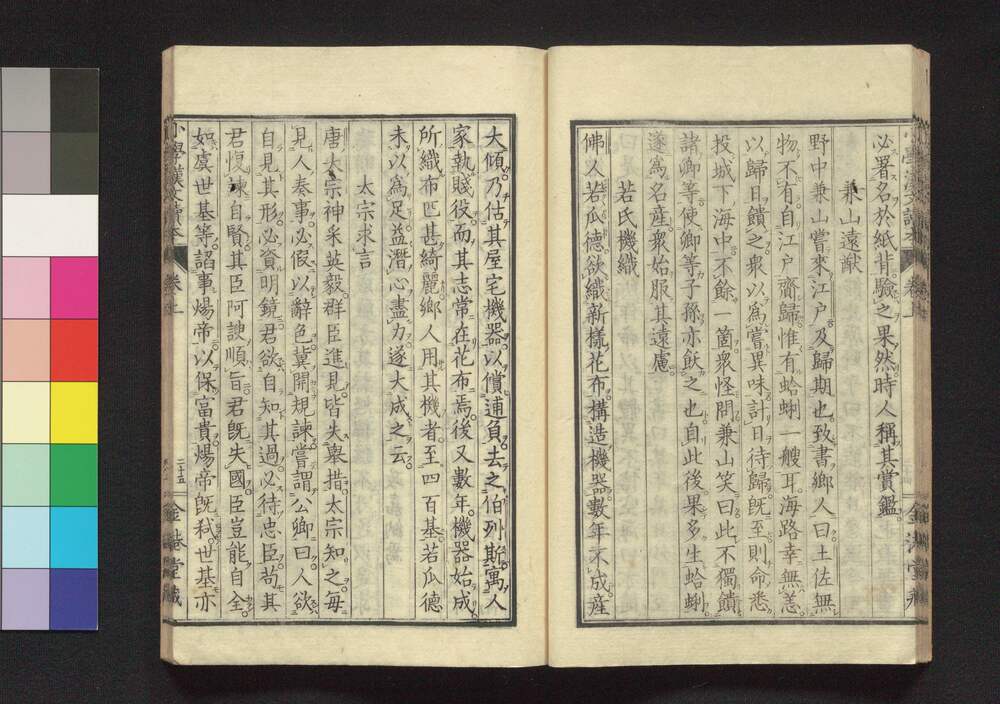 必署名於紙背驗之果然時人稱其賞鑑
兼山遠猷
野中兼山嘗來江戸及歸期也致書鄉人曰土佐無
物不有自江戸齎歸惟有蛤蜊一艘耳海路幸無恙
以歸日饋之衆以爲嘗異味計日待歸旣至則命悉
投城下海中不餘一箇衆怪問兼山笑曰此不獨饋
諸卿等使卿等子孫亦飫之也自此後果多生蛤蜊
遂爲名産衆始服其遠慮
若氏機織
佛人若瓜德欲織新樣花布構造機器數年不成産
大傾乃估其屋宅機器以償逋負去之伯列斯寓人
家執賤役而其志常在花布焉後又數年機器始成
所織布匹甚綺麗鄉人用其機者至四百基若瓜德
未以爲足益潛心盡力遂大成之云
太宗求言
唐太宗神采英毅群臣進見皆失擧措太宗知之每
見人奏事必假以辭色冀開規諫嘗謂公卿曰人欲
自見其形必資明鏡君欲自知其過必待忠臣苟其
君愎諫自賢其臣阿諛順旨君旣失國臣豈能自全
如虞世基等諂事煬帝以保富貴煬帝旣弑世基亦
小學漢文讀本 卷上 二十五 金港堂藏